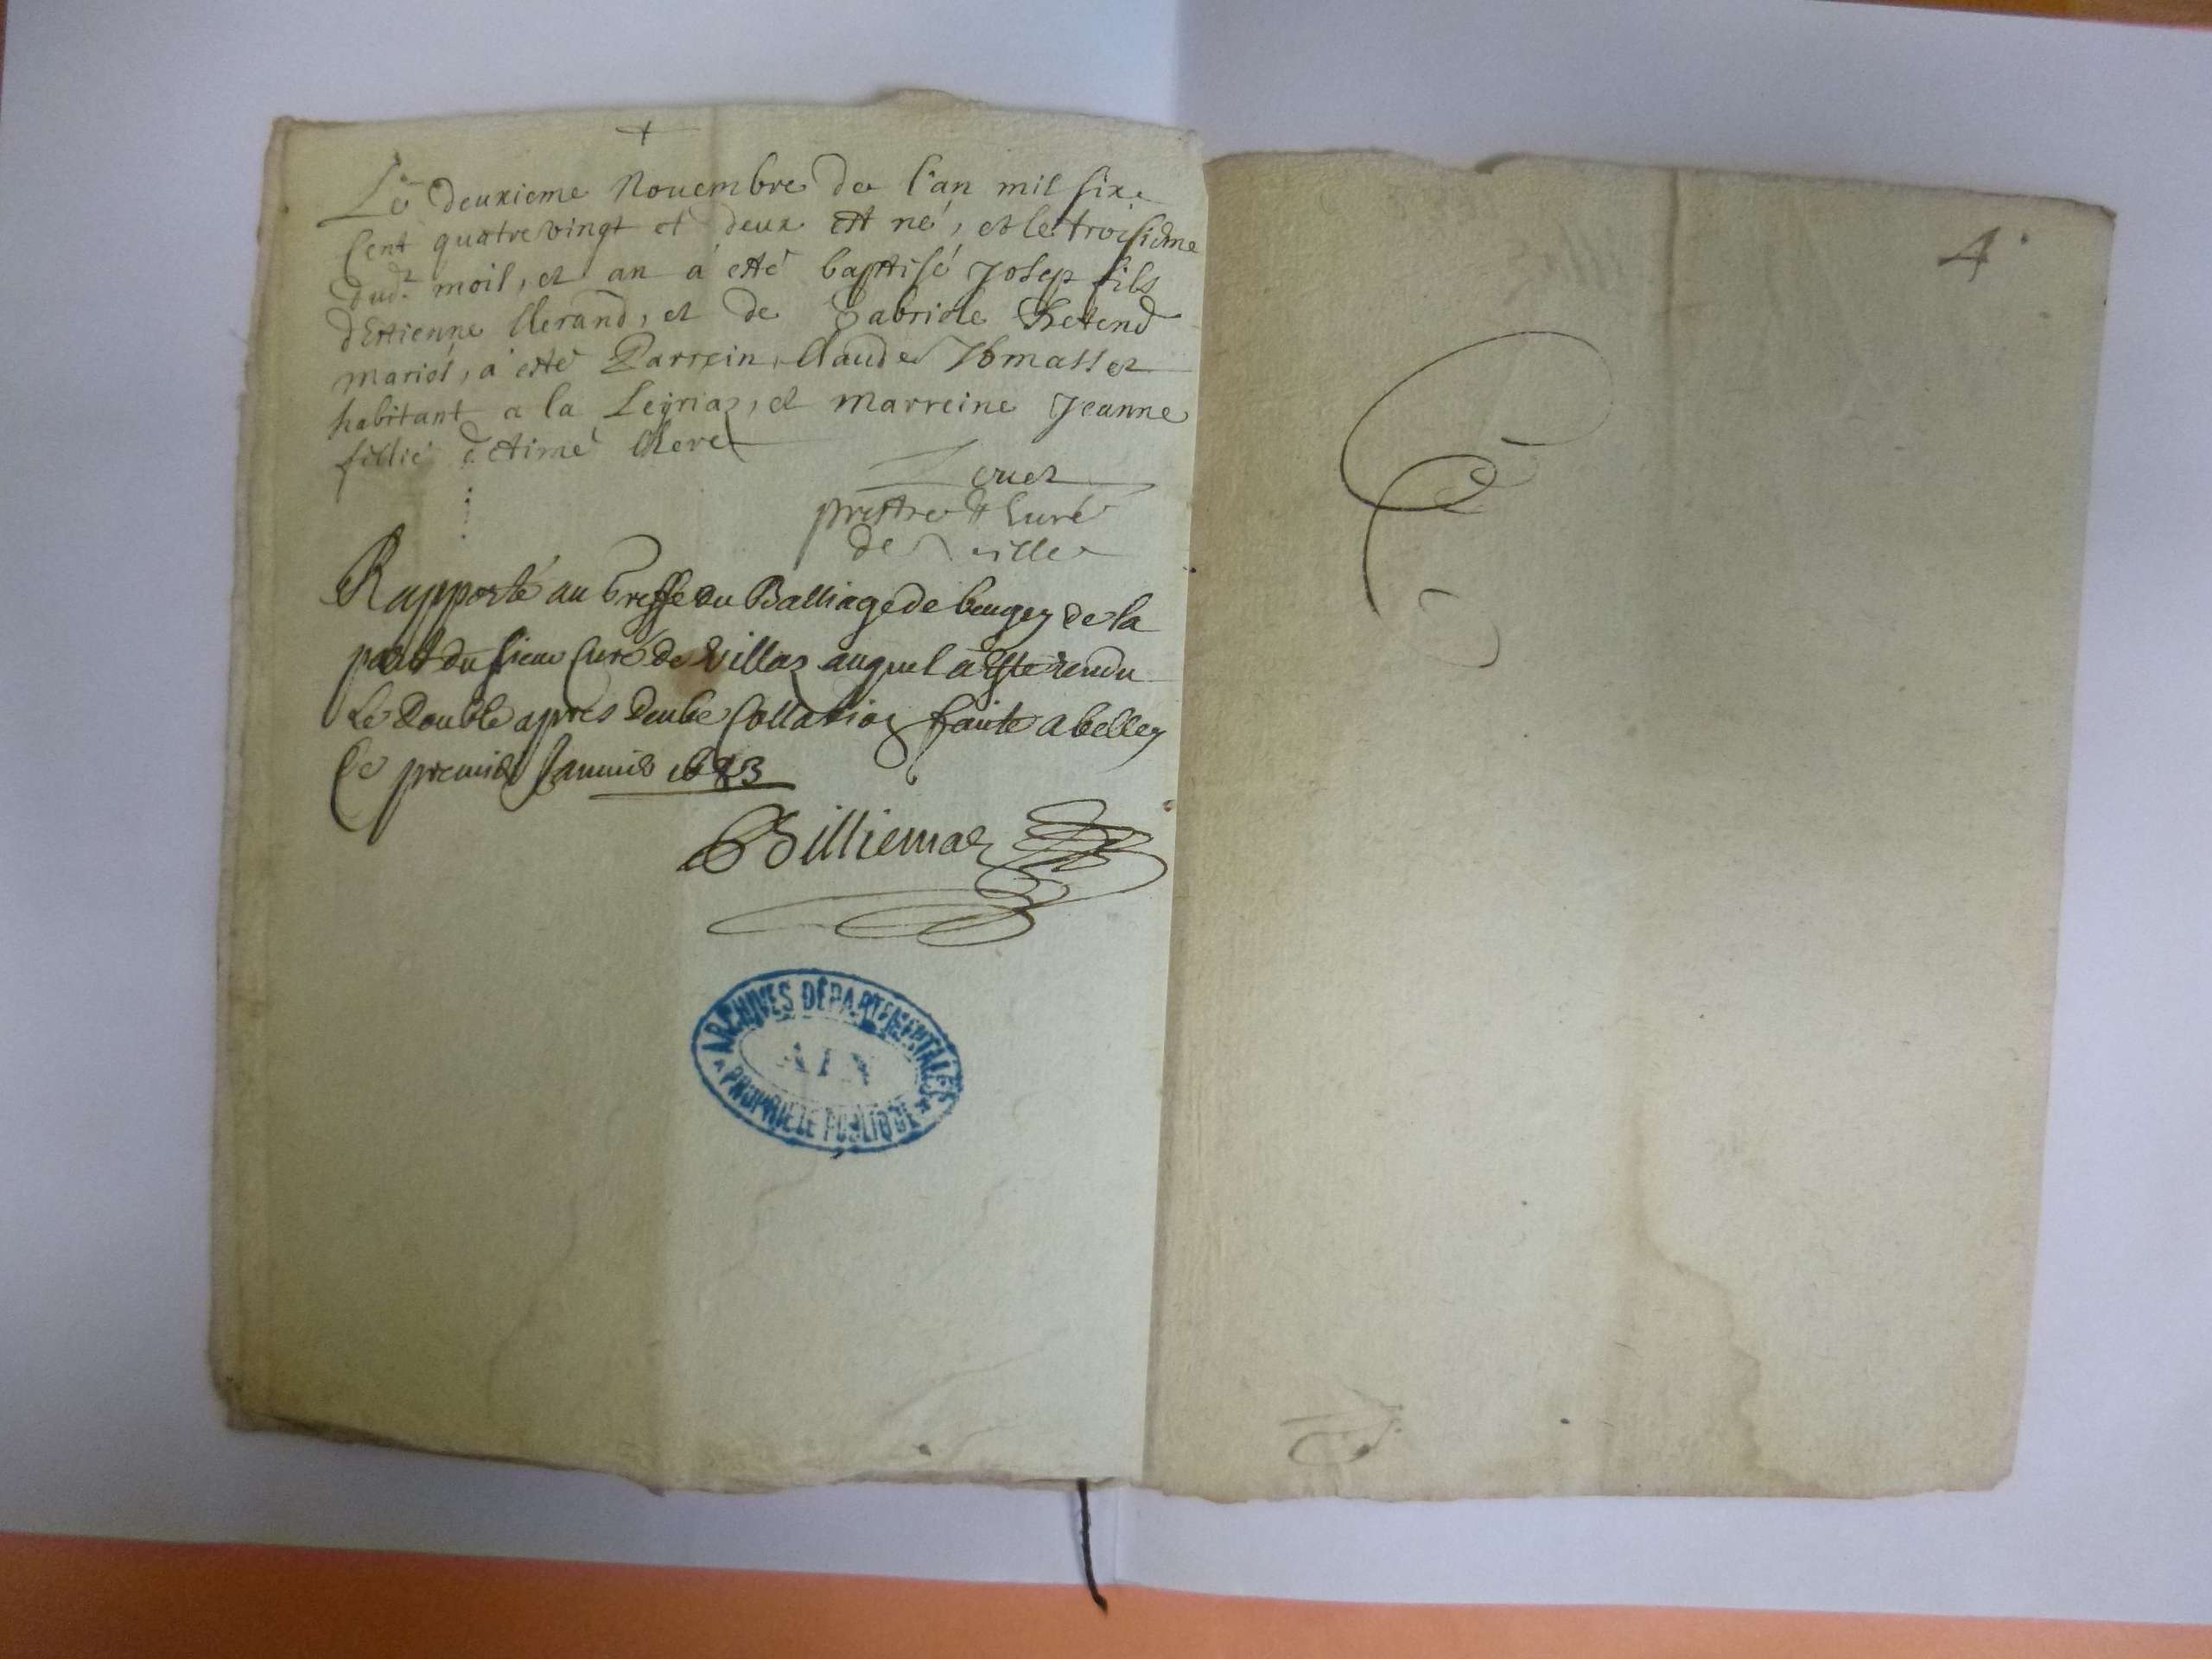 +
Le deuxieme Nouembre de l'an mil six
Cent quatre vingt et deux est né, et le troisieme
dud.t mois, et an a esté baptisé Josep fils
d'Estienne Clerand, et de Gabriele
mariés, a esté Parrein Claude Thomasset
habitant a la Leyriaz, et marreine Jeanne
fillie d'Aimé
prestre et Curé
de Ville
Rapporté au Greffe du Balliage de beugey de la
part du sieur Curé de Villaz auquel a esté rendu
Le Double apres deube Collation faite a belley
Ce premier Januier 1683
Billiemaz
ARCHIVES DÉPARTEMENTALES
AIN
PROPRIÉTÉ PUBLIQUE
4